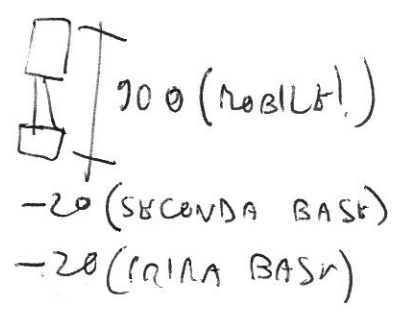 900 (MOBILE!)
-20 (SECONDA BASE)
-20 (PRIMA BASE)